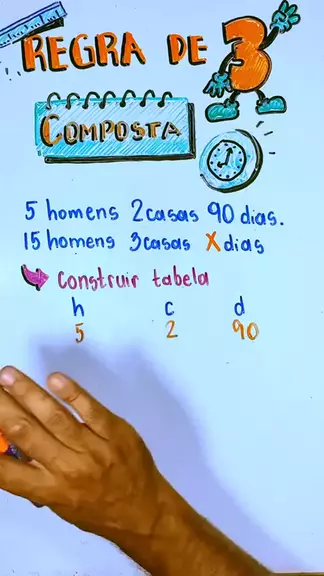 REGRA DE 3
COMPOSTA
5 homens 2 casas 90 dias.
15 homens 3 casas X dias
Construir tabela
h c d
5 2 90